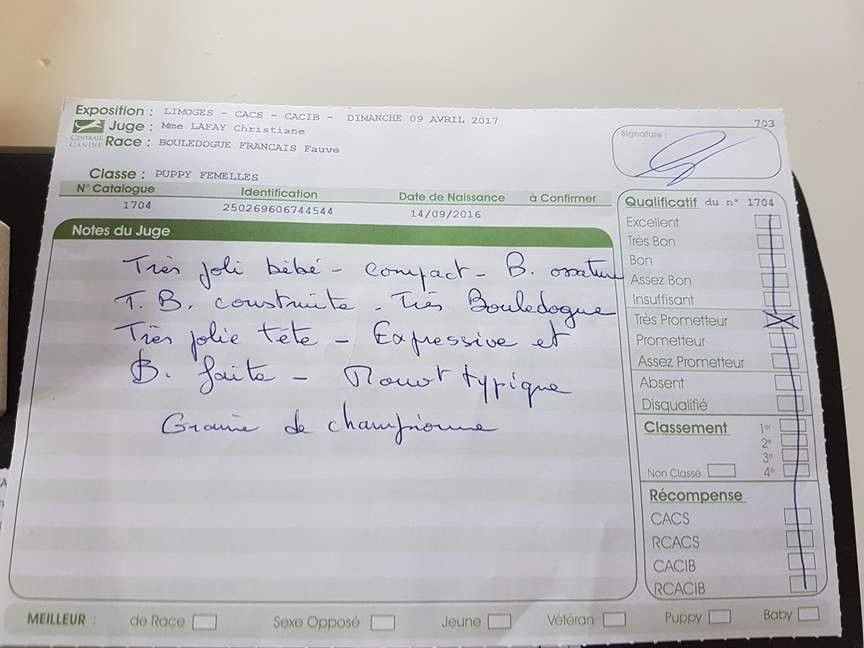 Exposition : LIMOGES - CACS - CACIB - DIMANCHE 09 AVRIL 2017
703
Juge : Mme LAFAY Christiane
CENTRALE CANINE
Race : BOULEDOGUE FRANCAIS Fauve
Signature :
Classe : PUPPY FEMELLES
N° Catalogue Identification Date de Naissance à Confirmer
1704 250269606744544 14/09/2016
Notes du Juge
Très joli bébé - compact - B. ossature
T. B. construite - Très Bouledogue
Très jolie tête - Expressive et
B. faite - typique
Graine de championne
Qualificatif du n° 1704
Excellent
Très Bon
Bon
Assez Bon
Insuffisant
Très Prometteur X
Prometteur
Assez Prometteur
Absent
Disqualifié
Classement 1er
2e
3e
Non Classé 4e
Récompense
CACS
RCACS
CACIB
RCACIB
MEILLEUR : de Race Sexe Opposé Jeune Vétéran Puppy Baby